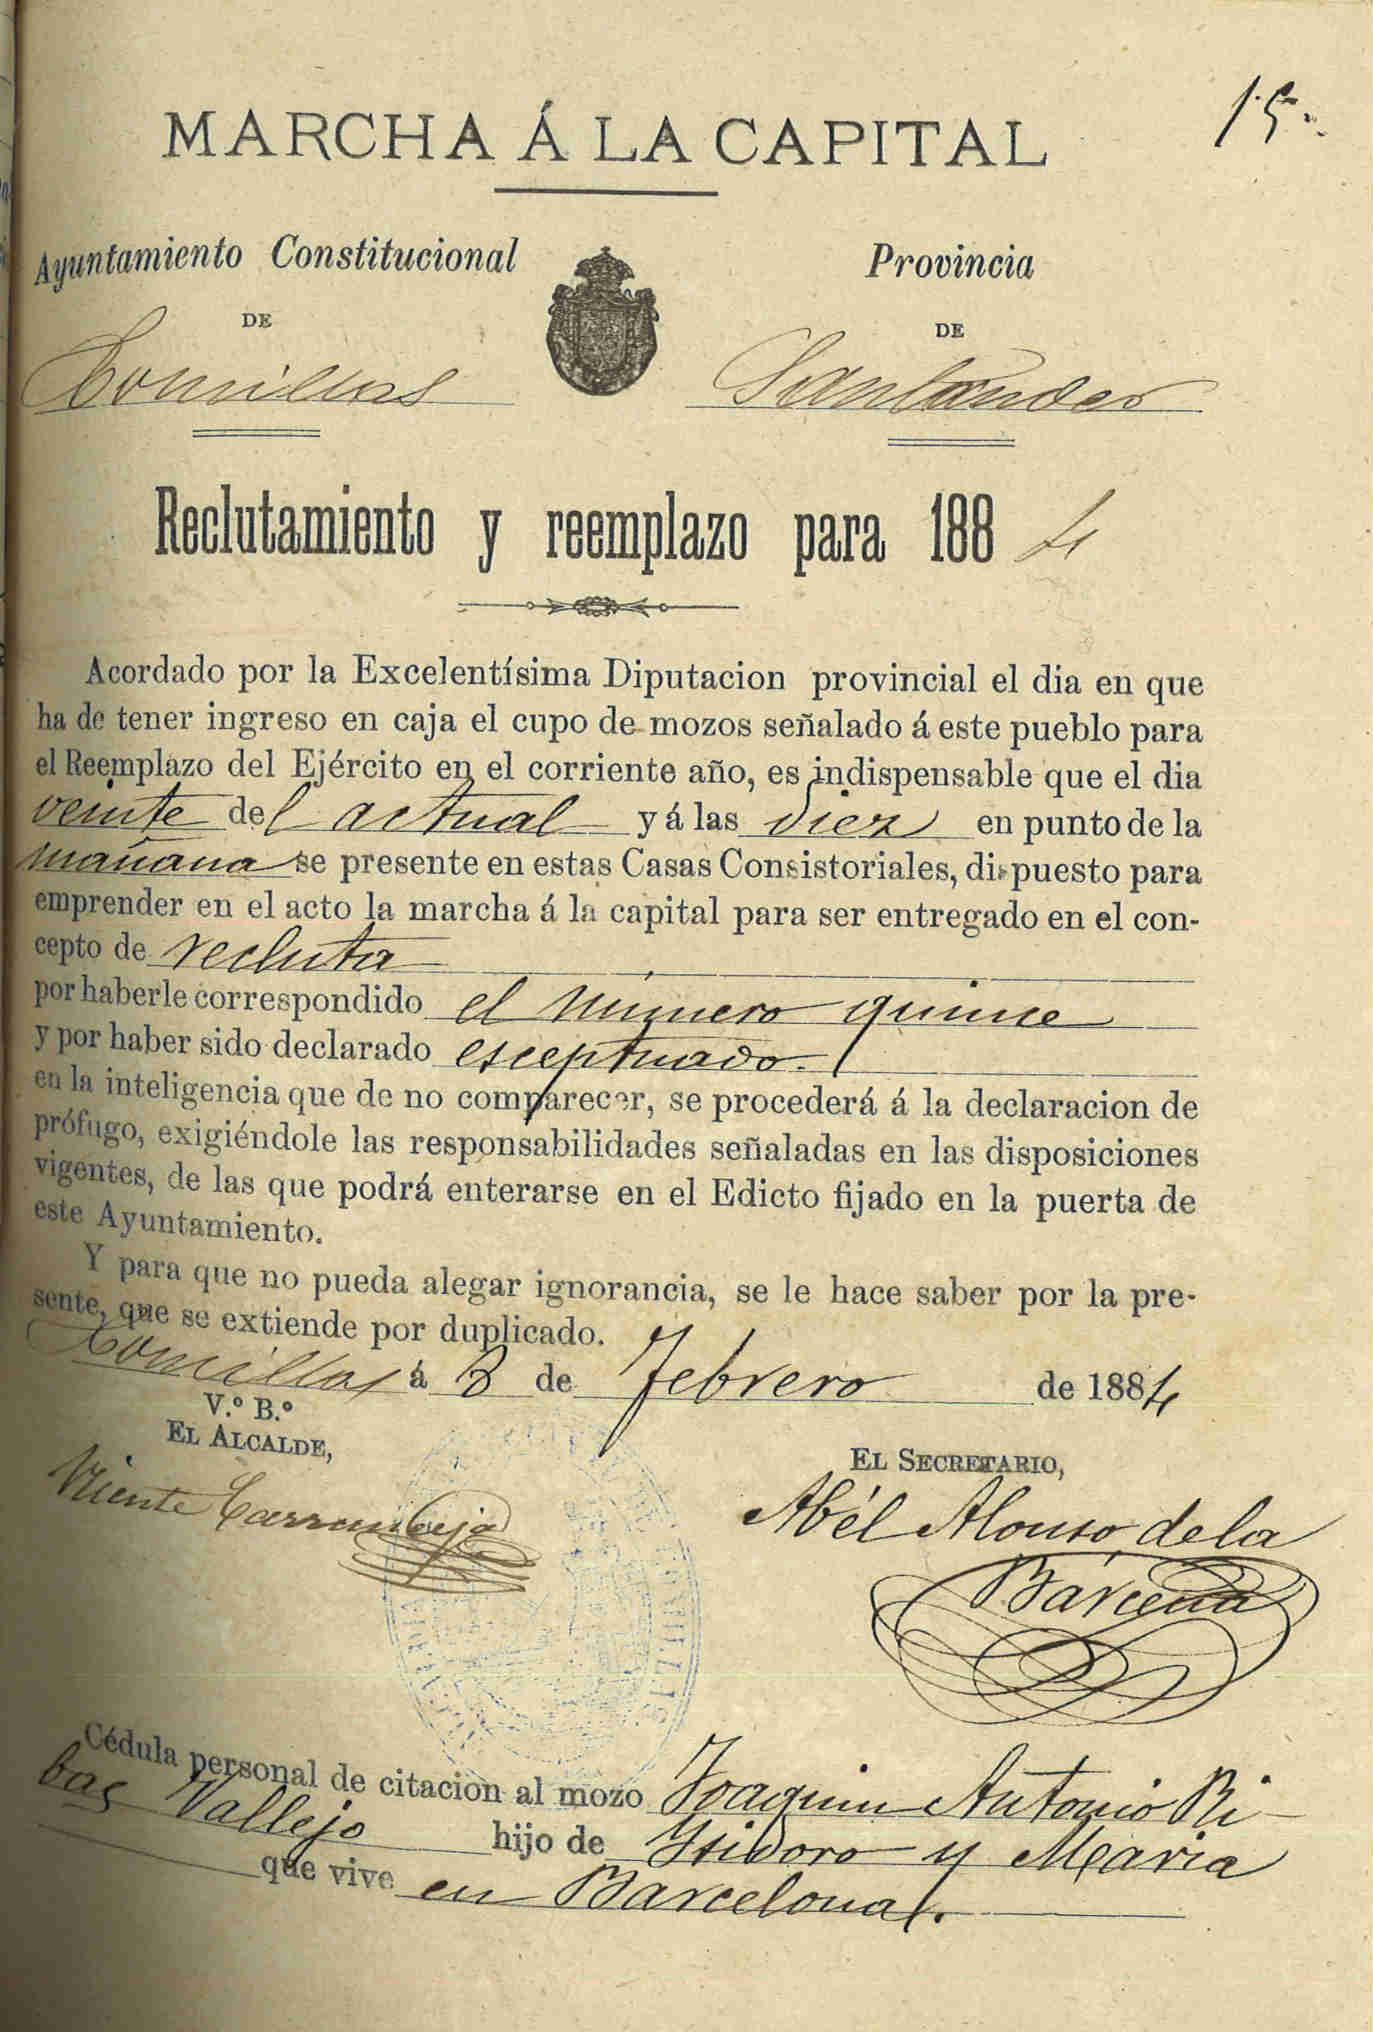 15
MARCHA Á LA CAPITAL
Ayuntamiento Constitucional
DE
Comillas
Provincia
DE
Santander
Reclutamiento y reemplazo para 1884
Acordado por la Excelentísima Diputacion provincial el dia en que
ha de tener ingreso en caja el cupo de mozos señalado á este pueblo para
el Reemplazo del Ejército en el corriente año, es indispensable que el dia
veinte del actual y á las diez en punto de la
mañana se presente en estas Casas Consistoriales, dispuesto para
emprender en el acto la marcha á la capital para ser entregado en el con-
cepto de recluta
por haberle correspondido el número quince
y por haber sido declarado esceptuado.
en la inteligencia que de no comparecer, se procederá á la declaracion de
prófugo, exigiéndole las responsabilidades señaladas en las disposiciones
vigentes, de las que podrá enterarse en el Edicto fijado en la puerta de
este Ayuntamiento.
Y para que no pueda alegar ignorancia, se le hace saber por la pre-
sente, que se extiende por duplicado.
Comillas á 8 de Febrero de 1884
V.º B.º
EL ALCALDE,
Vicente Carranceja
EL SECRETARIO,
Abél Alonso de la
Bárcena
Cédula personal de citacion al mozo Joaquin Antonio Ri-
bas Vallejo hijo de Isidoro y Maria
que vive en Barcelona.